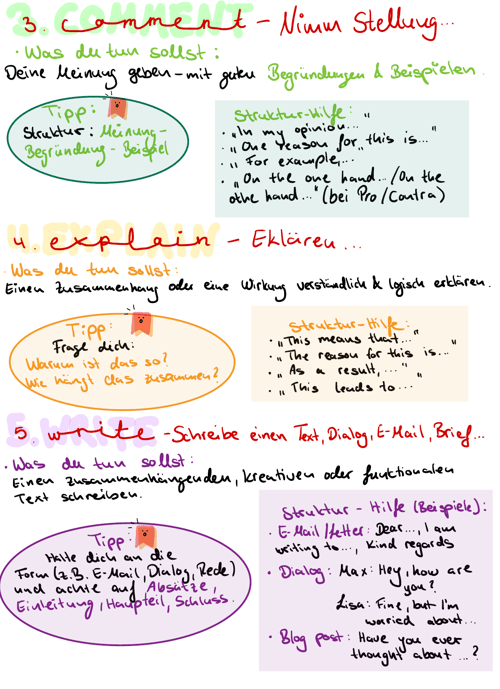 3. COMMENT
3. comment - Nimm Stellung...
· Was du tun sollst:
Deine Meinung geben - mit guten Begründungen & Beispielen.
Tipp:
Struktur: Meinung-
Begründung - Beispiel
Struktur-Hilfe: "
· "In my opinion...
· "One reason for this is..."
· "For example,...
· "On the one hand... / On the
othe hand..." (bei Pro/Contra)
4. EXPLAIN
4. explain - Eklären...
· Was du tun sollst:
Einen Zusammenhang oder eine Wirkung verständlich & logisch erklären.
Tipp:
Frage dich:
Warum ist das so?
Wie hängt das zusammen?
Struktur-Hilfe:
· "This means that..."
· "The reason for this is..."
· "As a result,..."
· "This leads to...
5. WRITE
5. write - Schreibe einen Text, Dialog, E-Mail, Brief...
· Was du tun sollst:
Einen zusammenhängenden, kreativen oder funktionalen
Text schreiben.
Tipp:
Halte dich an die
Form (z.B. E-Mail, Dialog, Rede)
und achte auf Absätze,
Einleitung, Haupteil, Schluss.
Struktur - Hilfe (Beispiele):
· E-Mail/letter: Dear..., I am
writing to..., Kind regards
· Dialog: Max: Hey, how are
you?
Lisa: Fine, but I'm
woried about...
· Blog post: Have you ever
thought about ...?